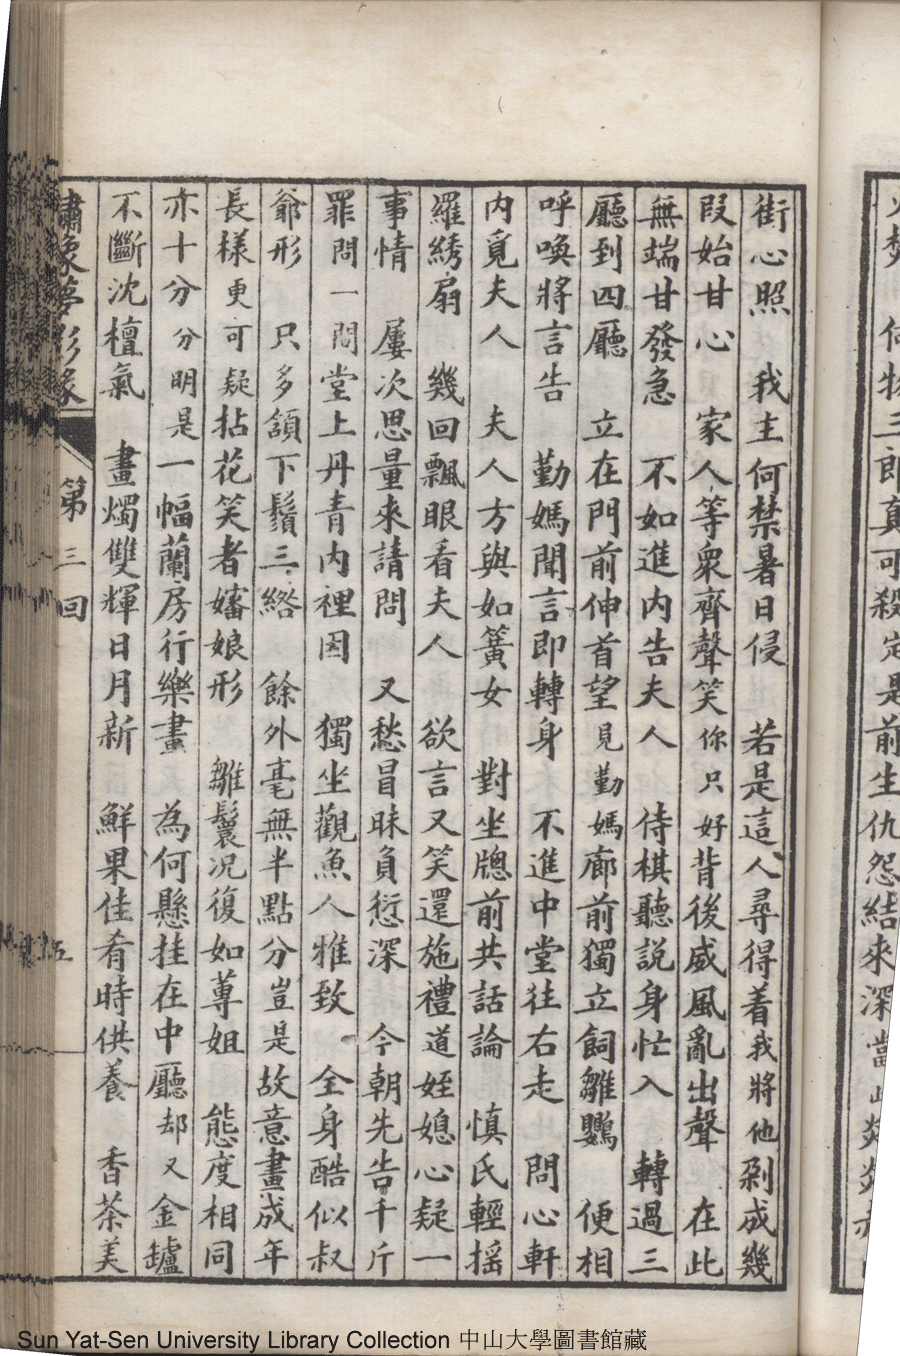 街心照　我主何禁暑日侵　若是這人尋得着我將他剁成幾
段始甘心　家人等衆齊聲笑你只好背後威風亂出聲　在此
無端甘發急　不如進内告夫人　侍棋聽說身忙入　轉過三
廳到四廳　立在門前伸首望見勤媽廊前獨立飼雛鸚　便相
呼喚將言告　勤媽聞言即轉身　不進中堂往右走　問心軒
内覓夫人　夫人方與如簧女　對坐牕前共話論　慎氏輕摇
羅綉扇　幾回飄眼看夫人　欲言又笑還施禮道姪媳心疑一
事情　屢次思量來請問　又愁冒昧負愆深　今朝先告千斤
罪問一問堂上丹青内裡因　獨坐觀魚人雅致　全身酷似叔
爺形　只多頷下鬚三綹　餘外毫無半點分豈是故意畫成年
長樣更可疑拈花笑者嬸娘形　雛鬟况復如蓴姐　態度相同
亦十分分明是一幅蘭房行樂畫　為何懸挂在中廳却又金鑪
不斷沈檀氣　畫燭雙輝日月新　鮮果佳肴時供養　香茶美
繡像夢影緣
第三回
五
何物三郎真可殺定是前生仇怨結來深當
Sun Yat-Sen University Library Collection 中山大學圖書館藏